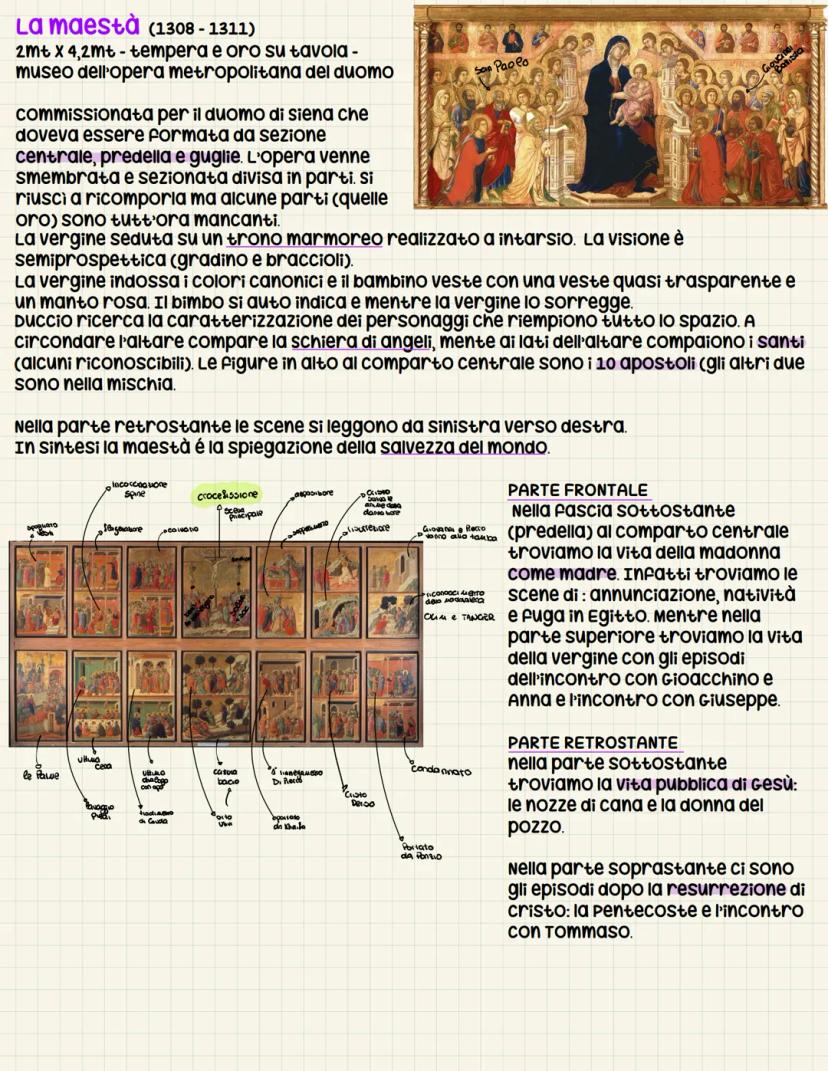 La maestà (1308 - 1311)
2mt x 4,2mt - tempera e oro su tavola -
museo dell'opera metropolitana del duomo
San Paolo
Giovanni Battista
commissionata per il duomo di siena che
doveva essere formata da sezione
centrale, predella e guglie. L'opera venne
smembrata e sezionata divisa in parti. Si
riuscì a ricomporla ma alcune parti (quelle
oro) sono tutt'ora mancanti.
La vergine seduta su un trono marmoreo realizzato a intarsio. La visione è
semiprospettica (gradino e braccioli).
La vergine indossa i colori canonici e il bambino veste con una veste quasi trasparente e
un manto rosa. Il bimbo si auto indica e mentre la vergine lo sorregge.
Duccio ricerca la caratterizzazione dei personaggi che riempiono tutto lo spazio. A
circondare l'altare compare la schiera di angeli, mente ai lati dell'altare compaiono i santi
(alcuni riconoscibili). Le figure in alto al comparto centrale sono i 10 apostoli (gli altri due
sono nella mischia.
Nella parte retrostante le scene si leggono da sinistra verso destra.
In sintesi la maestà é la spiegazione della salvezza del mondo.
incoronazione
spine
crocefissione
scena
principale
deposizione
calvario
Giovanni e Pietro
vanno alla tomba
le Palme
ultima
cena
lavaggio
Piedi
tradimento
di Giuda
cattura
bacio
orto
ulivi
Cristo
Deriso
condannato
Portato
da Ponzio
PARTE FRONTALE
Nella fascia sottostante
(predella) al comparto centrale
troviamo la vita della madonna
come madre. Infatti troviamo le
scene di : annunciazione, natività
e fuga in Egitto. Mentre nella
parte superiore troviamo la vita
della vergine con gli episodi
dell'incontro con Gioacchino e
Anna e l'incontro con Giuseppe.
PARTE RETROSTANTE
nella parte sottostante
troviamo la vita pubblica di Gesù:
le nozze di cana e la donna del
pozzo.
Nella parte soprastante ci sono
gli episodi dopo la resurrezione di
cristo: la Pentecoste e l'incontro
con Tommaso.